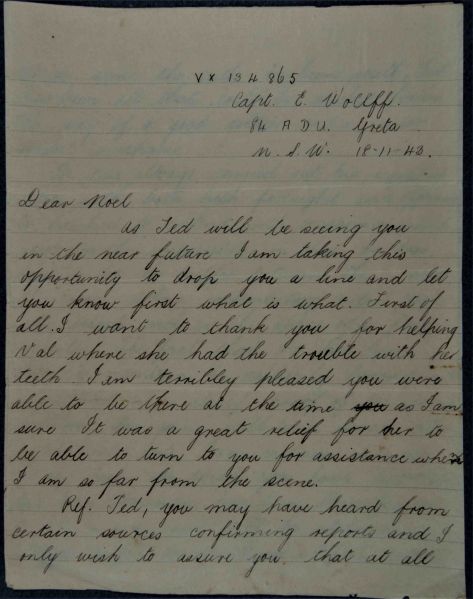 VX 134865
Capt. E. Wollff.
84 A D U. Greta
N. S. W. 18-11-43.
Dear Noel
as Ted will be seeing you
in the near future I am taking this
opportunity to drop you a line and let
you know first what is what. First of
all. I want to thank you for helping
Val where she had the trouble with her
teeth. I am terribley pleased you were
able to be there at the time you as I am
sure It was a great relief for her to
be able to turn to you for assistance when
I am so far from the scene.
Ref. Ted, you may have heard from
certain sources confirming reports and I
only wish to assure you, that at all